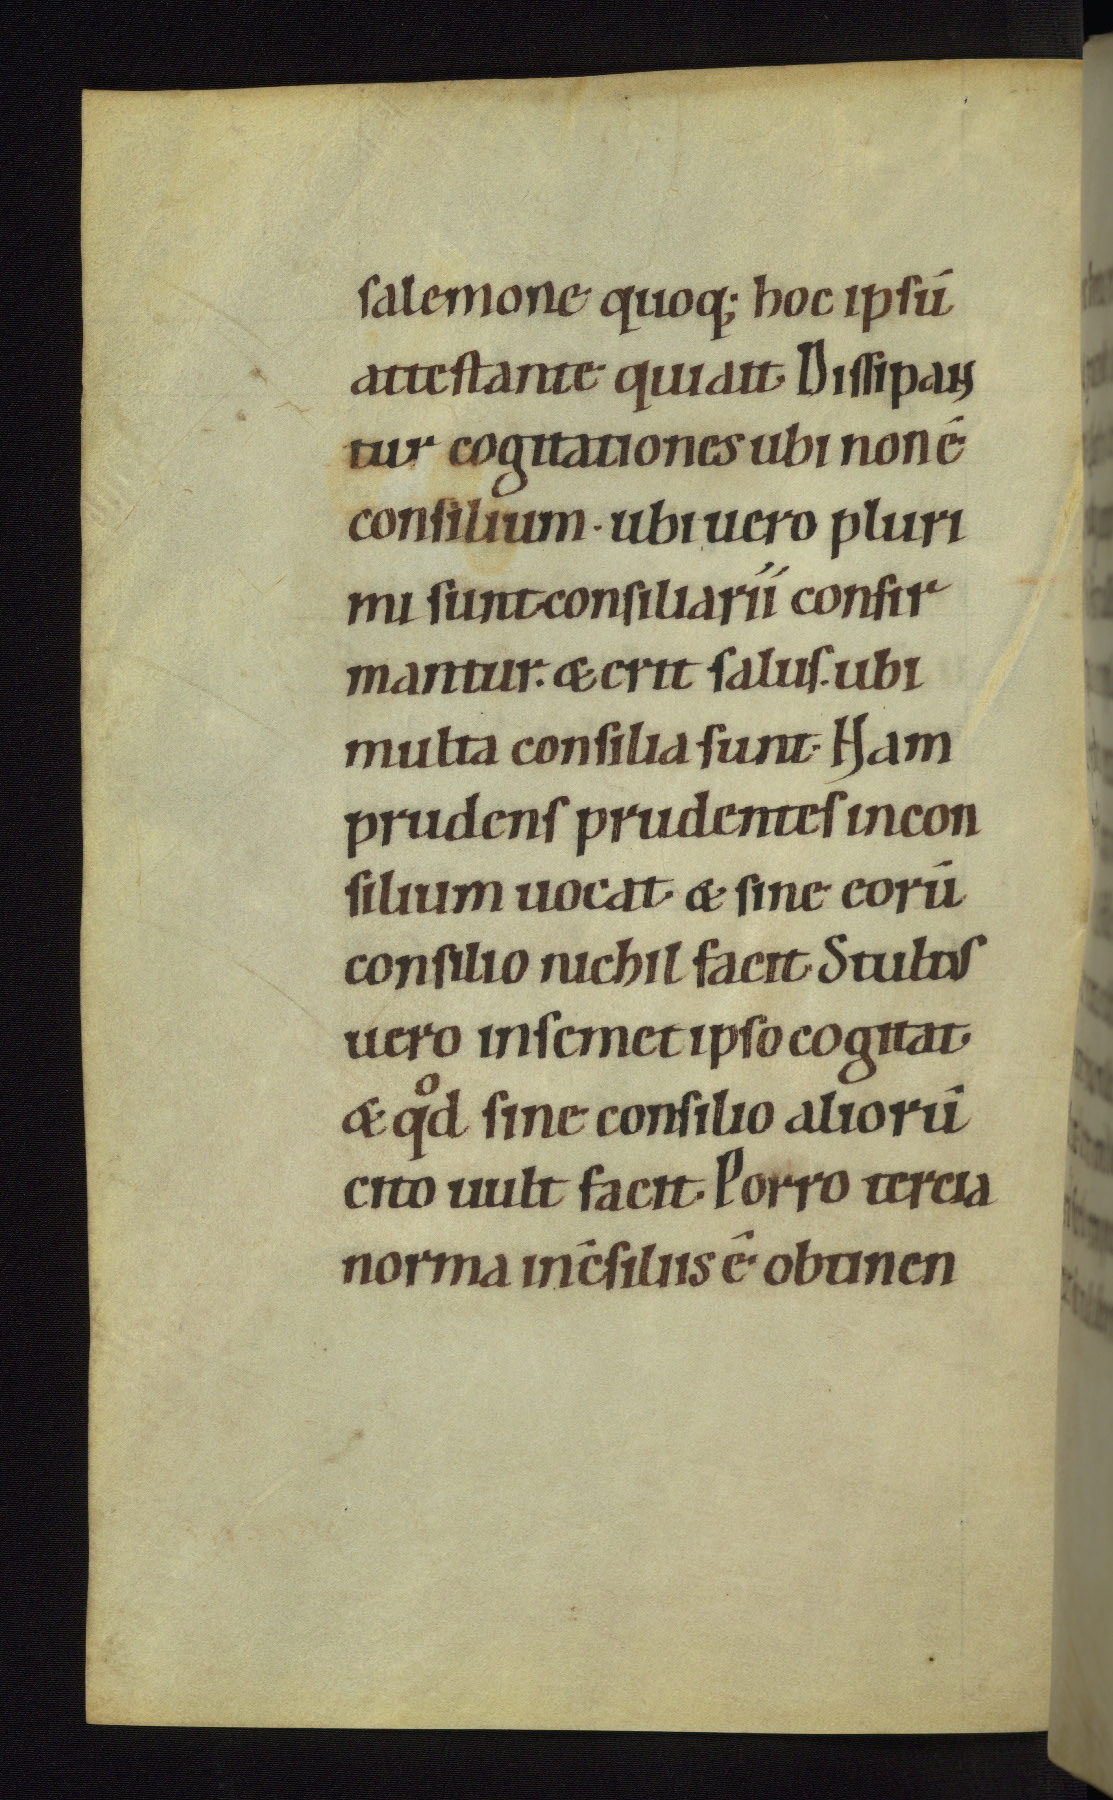 salemone quoq; hoc ipsū
attestante qui ait. Dissipan
tur cogitationes ubi non ē
consilium · ubi uero pluri
mi sunt consiliarii confir
mantur. & erit salus. ubi
multa consilia sunt. Nam
prudens prudentes in con
silium uocat. & sine eorū
consilio nichil facit. Stultus
uero in semet ipso cogitat.
& qͦd sine consilio aliorū
cito uult facit. Porro tercia
norma in c̄siliis ē obtinen